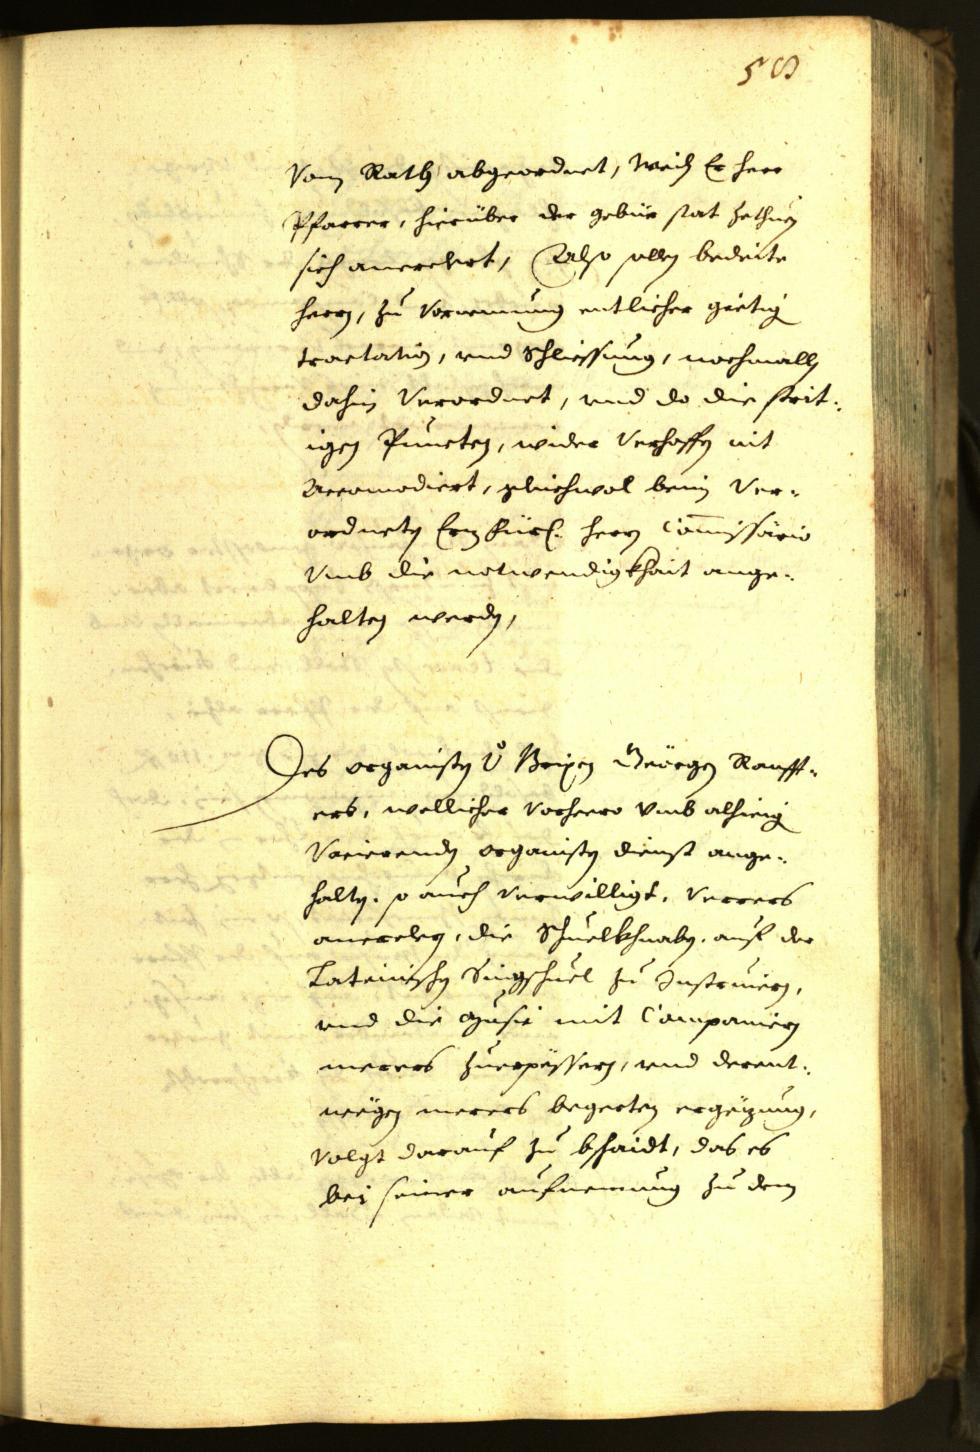 58
Vom Rath abgeordnet, Weil Er herr
Pfarrer, hierüber der gebür stat zethuen
sich anerclert, Also sollen bedeite
herrn, zu Vornemung entlicher gietig
tractation, vnd Schliessung, nochmalls
dahin Verordnet, vnd do die strit-
igen Puncten, wider Verhoffen nit
Accomodiert, gleichwol beim Ver-
ordneten herrn Commissario
Vmb die notwendigkhait ange-
halten werden,
Des organisten Brixen Geörgen Raufft-
ers, wellicher Vorheero Vmb alhieig
Vacierenden organisten dienst ange-
halten, so auch Verwilligt, Verrers
anerclern, die Schuelkhnaben, auf der
Lateinischen Singschuel zu Instruiern,
vnd die Music mit Companiern
merers zuerpessern, vnd derent-
weegen merers begerten ergözung,
Volgt darauf zu bschaidt, das es
bei seiner aufnemung zu dem